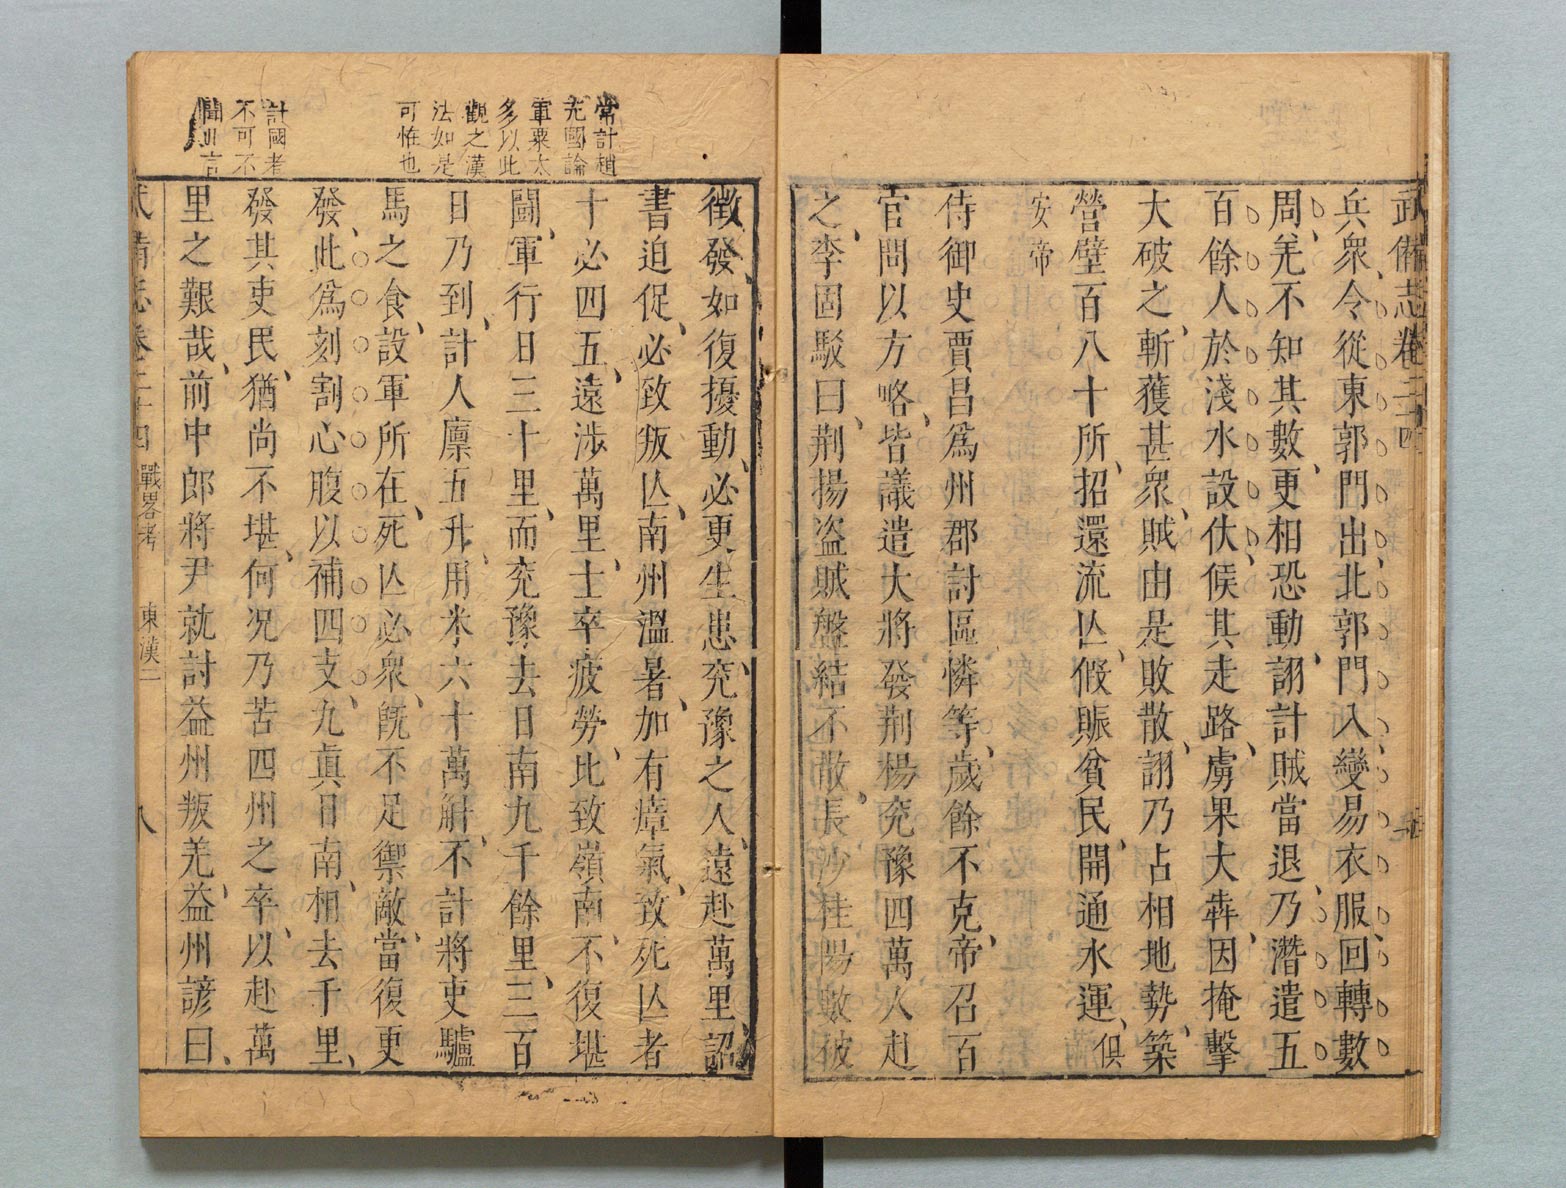 武備志卷二十四
兵衆、令從東郭門出、北郭門入變易衣服、回轉數
周、羌不知其數、更相恐動、詡計賊當退、乃潛遣五
百餘人於淺水設伏、候其走路、虜果大犇、因掩擊
大破之、斬獲甚衆、賊由是敗散、詡乃占相地勢、築
營壁百八十所、招還流亾、假賑貧民、開通水運、俱
安帝
侍御史賈昌爲州郡討區憐等、歲餘不克、帝召百
官、問以方略、皆議遣大將發荊楊兖豫四萬人赴
之、李固駁曰、荊揚盜賊盤結不散。長沙桂陽數被
徵發、如復擾動、必更生患、兖豫之人、遠赴萬里、詔
書迫促、必致叛亾、南州溫暑、加有瘴氣、致死亾者
十必四五、遠涉萬里、士卒疲勞、比致嶺南、不復堪
鬪、軍行日三十里、而兖豫去日南九千餘里、三百
日乃到、計人廩五升、用米六十萬斛、不計將吏驢
馬之食、設軍所在、死亾必衆、旣不足禦敵、當復更
發、此爲刻割心腹以補四支、九眞日南、相去千里、
發其吏民、猶尚不堪、何况乃苦四州之卒、以赴萬
里之艱哉、前中郎將尹就討益州叛羌、益州諺曰、
武備志卷二十四 戰畧考 東漢二 八
常計趙
充國論
軍粟太
多以此
觀之漢
法如是
可惟也
計國者
不可不
聞此言